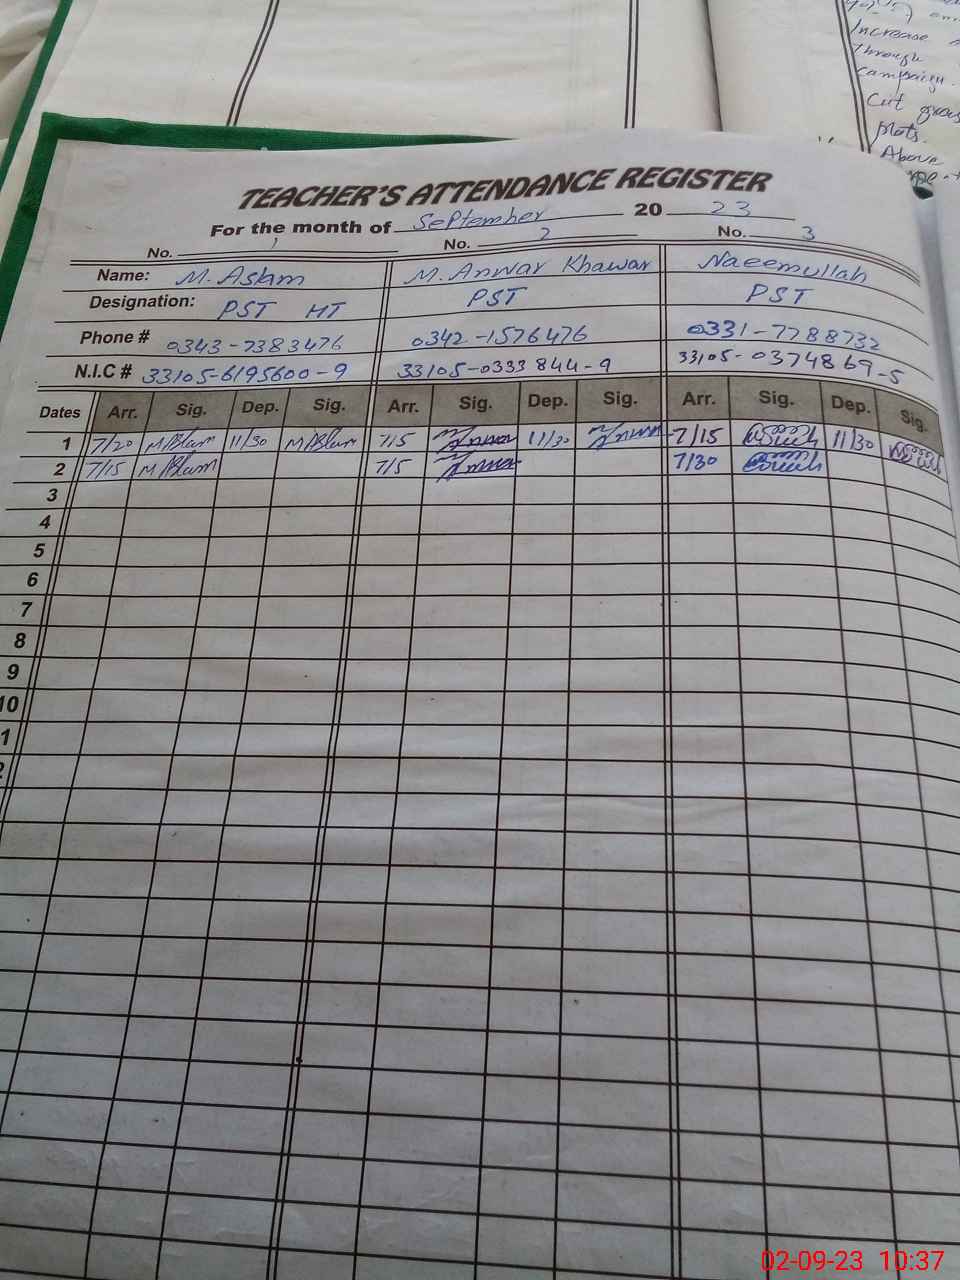 Increase
through
campaign.
Cut grass
plots.
Above
TEACHER'S ATTENDANCE REGISTER
For the month of September 20 23
No. 1 No. 2 No. 3
Name: M. Aslam M. Anwar Khawar Naeemullah
Designation: PST HT PST PST
Phone # 0343-7383476 0342-1576476 0331-7788732
N.I.C # 33105-6195600-9 33105-0333844-9 33105-0374869-5
Dates Arr. Sig. Dep. Sig. Arr. Sig. Dep. Sig. Arr. Sig. Dep. Sig.
1 7/20 M Aslam 11/30 M Aslam 7/5 Anwar 11/30 Anwar 7/15 11/30
2 7/15 M Aslam 7/5 Anwar 7/30
3
4
5
6
7
8
9
10
1
2
02-09-23 10:37